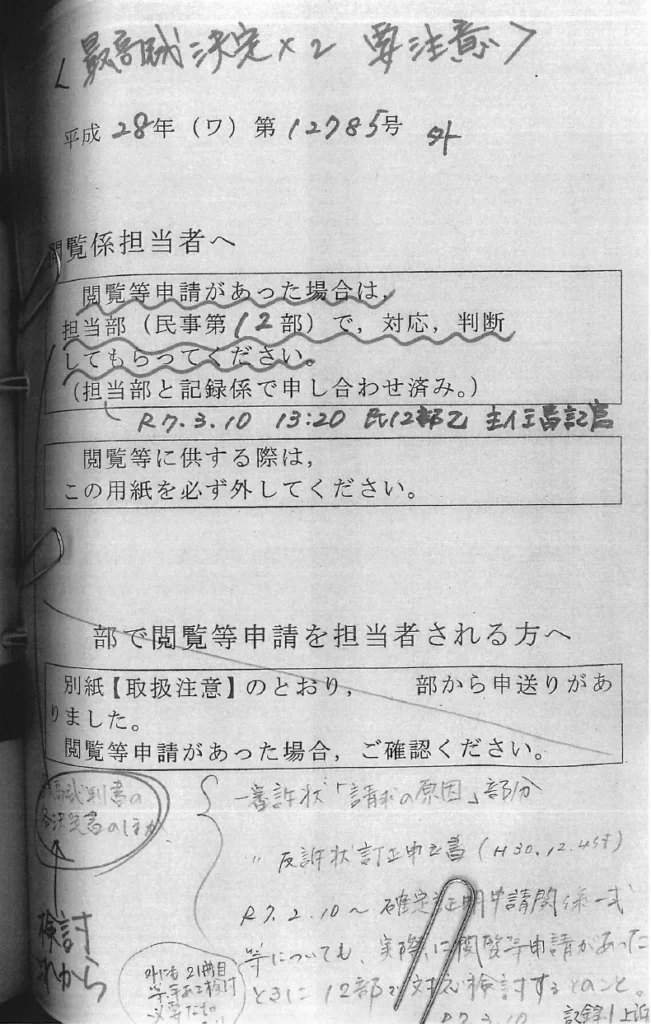 <最高裁決定×2 要注意>
平成28年(ワ)第12785号 外
閲覧係担当者へ
閲覧等申請があった場合は,
担当部(民事第12部)で,対応,判断
してもらってください。
(担当部と記録係で申し合わせ済み。)
R7.3.10 13:20 民12部乙 主任書記官
閲覧等に供する際は,
この用紙を必ず外してください。
部で閲覧等申請を担当者される方へ
別紙【取扱注意】のとおり, 部から申送りがあ
りました。
閲覧等申請があった場合,ご確認ください。
一審訴状「請求の原因」部分
〃 反訴状訂正申立書(H30.12.4付)
R7.2.10〜 確定証明申請関係一式
等についても、実際に閲覧等申請があった
ときに12部で対応検討するとのこと。
R7.3.10
各決定書のほか
検討
それから
外にも21冊目